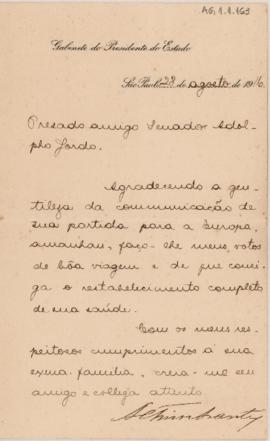 AG.1.1.163
Gabinete do Presidente do Estado
São Paulo, 28 de agosto de 1916.
Presado amigo Senador Adol-
pho Gordo.
Agradecendo a gen-
tileza da communicação de
sua partida para a Europa,
amanhan, faço-lhe meus votos
de bôa viagem e de que consi-
ga o restabelecimento completo
de sua saúde.
Com os meus res-
peitosos cumprimentos á sua
exma. familia, creia-me seu
amigo e collega attento